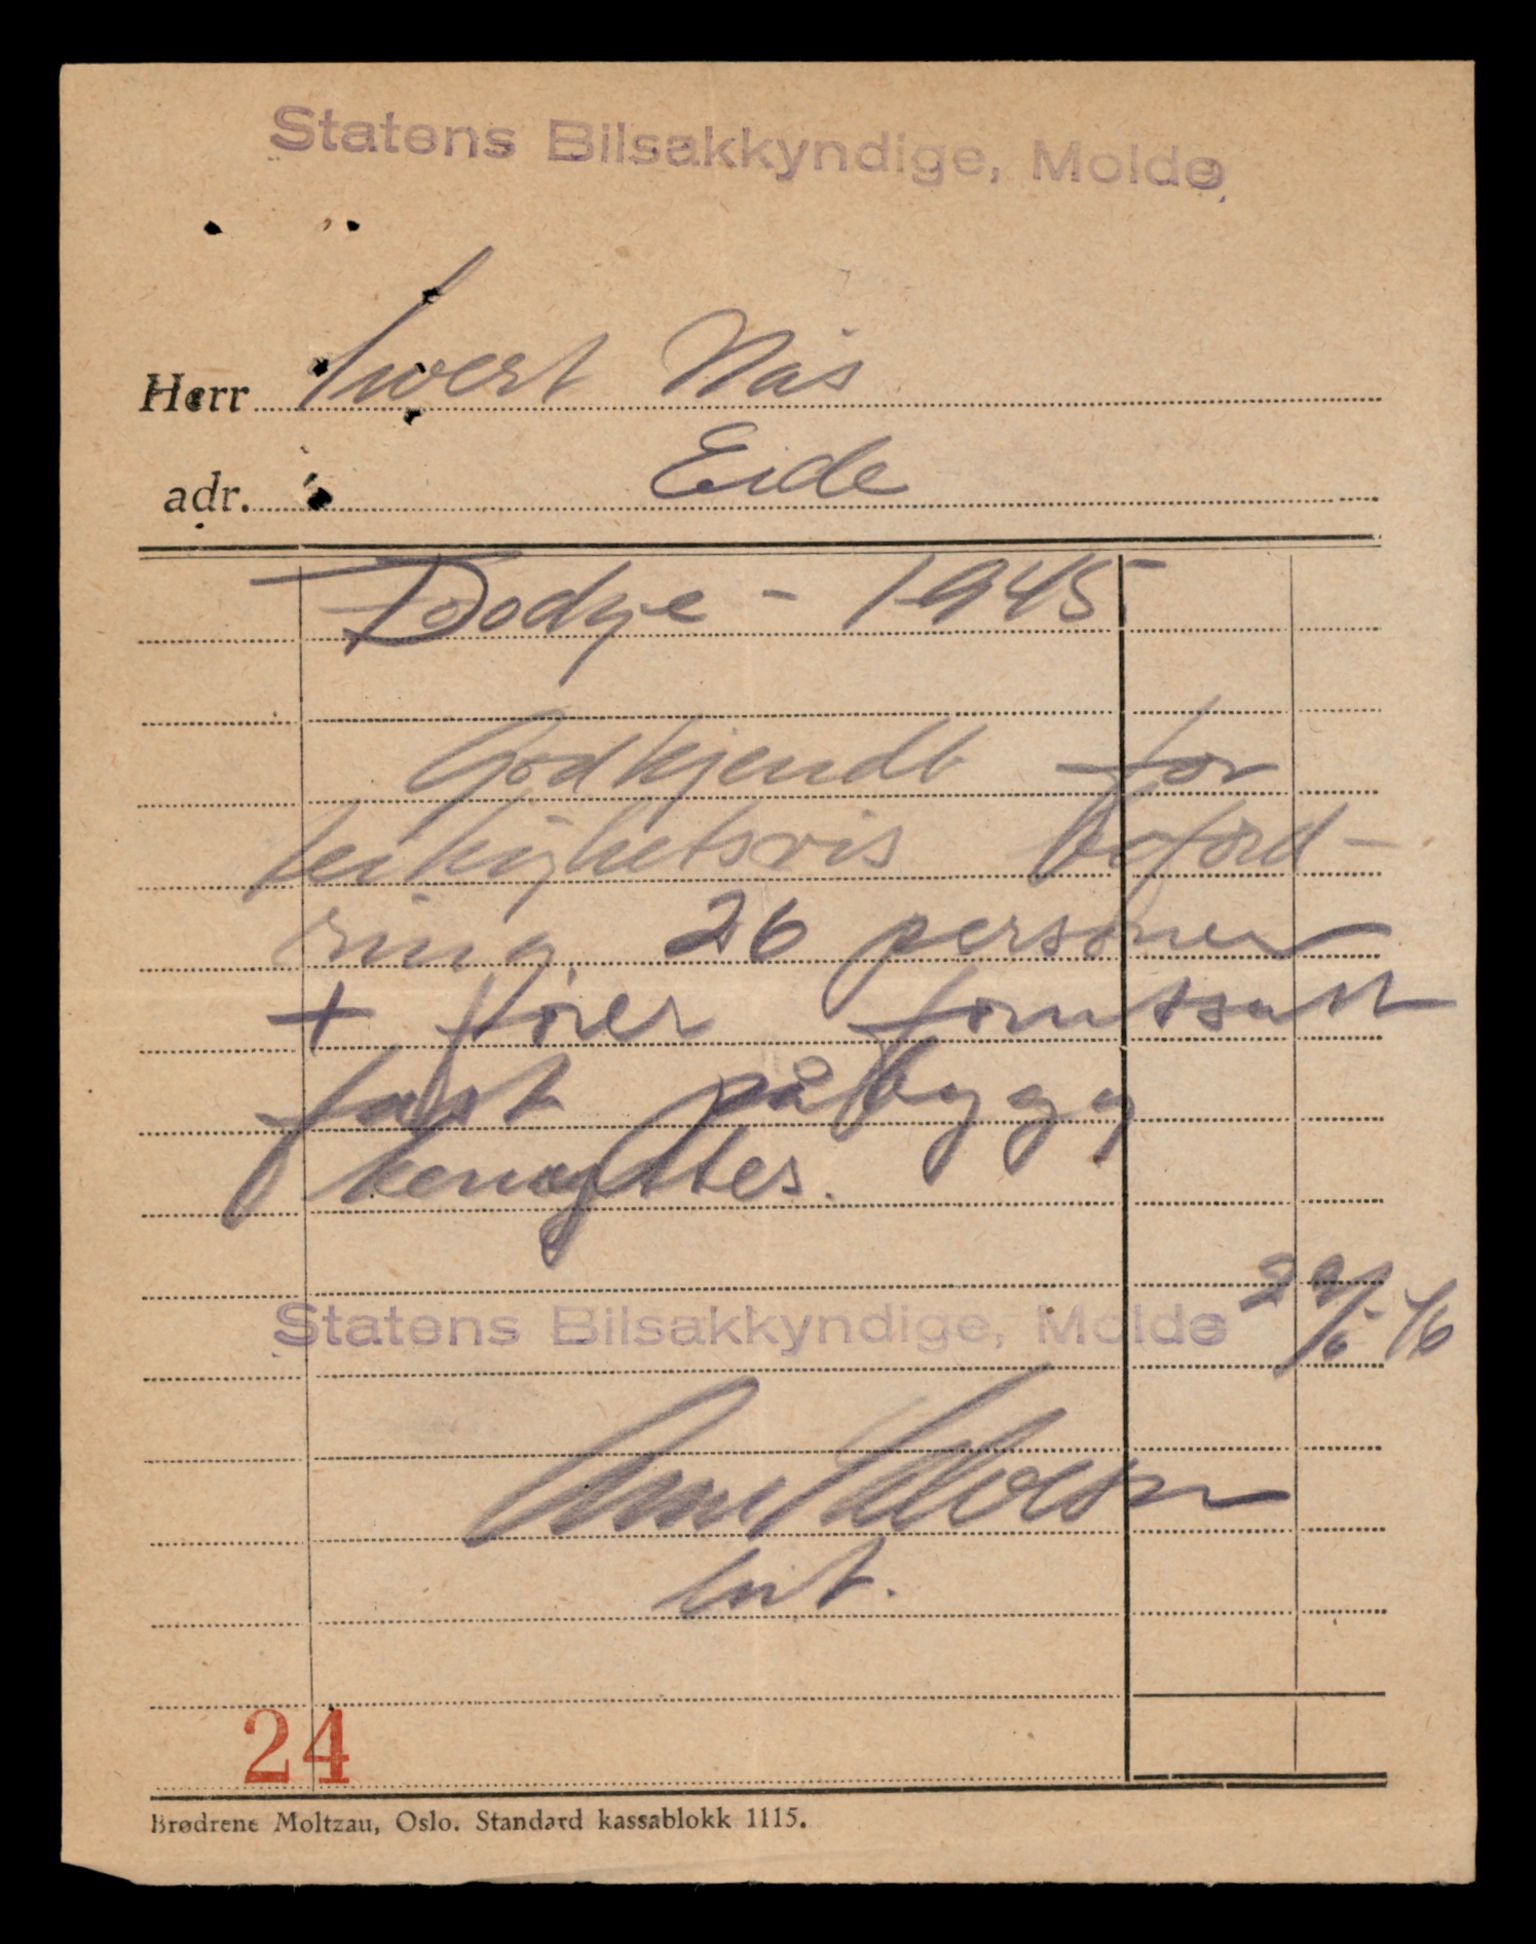 Statens Bilsakkyndige, Molde
Herr Sivert Nås
adr. Eide
Dodge - 1945
Godkjendt for
leilighetsvis beford-
ring 26 personer
+ fører forutsatt
fast påbygg
benyttes.
Statens Bilsakkyndige, Molde 29/6-46
Arne
24
Brødrene Moltzau, Oslo. Standard kassablokk 1115.